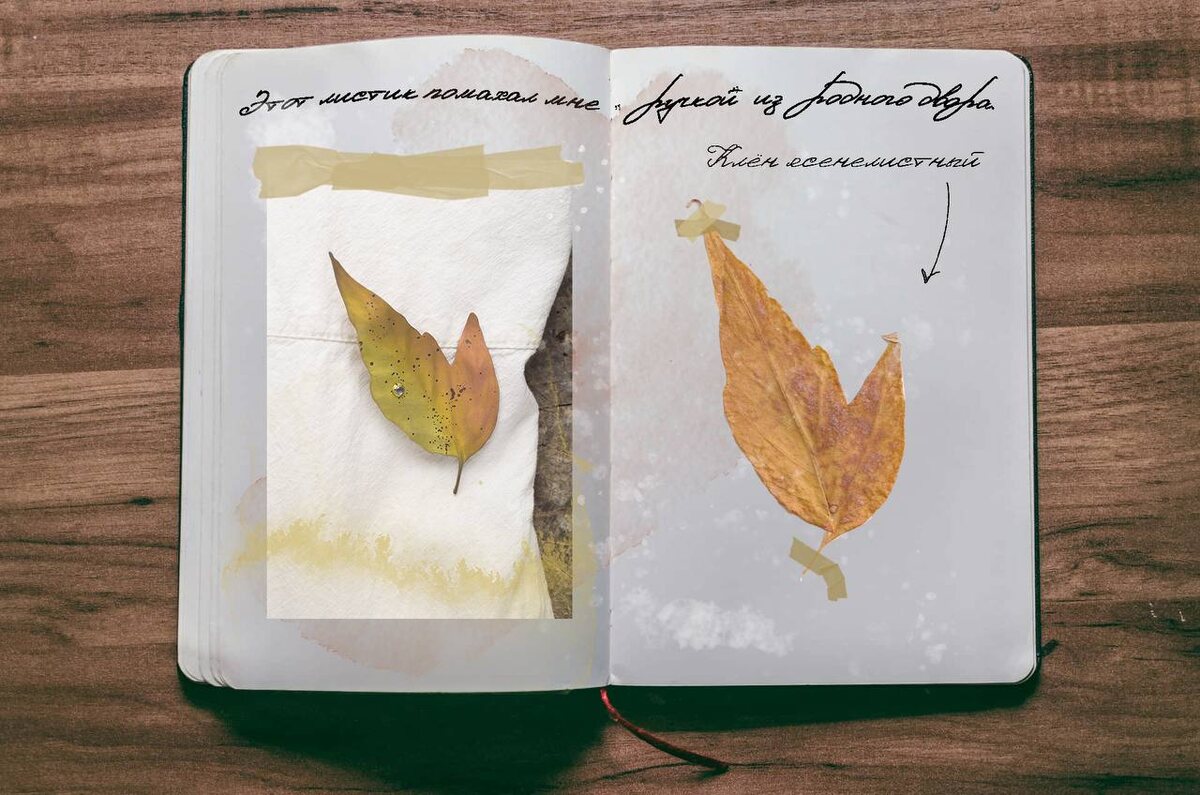 Этот листик помахал мне „ручкой" из родного двора.
Клён ясенелистный